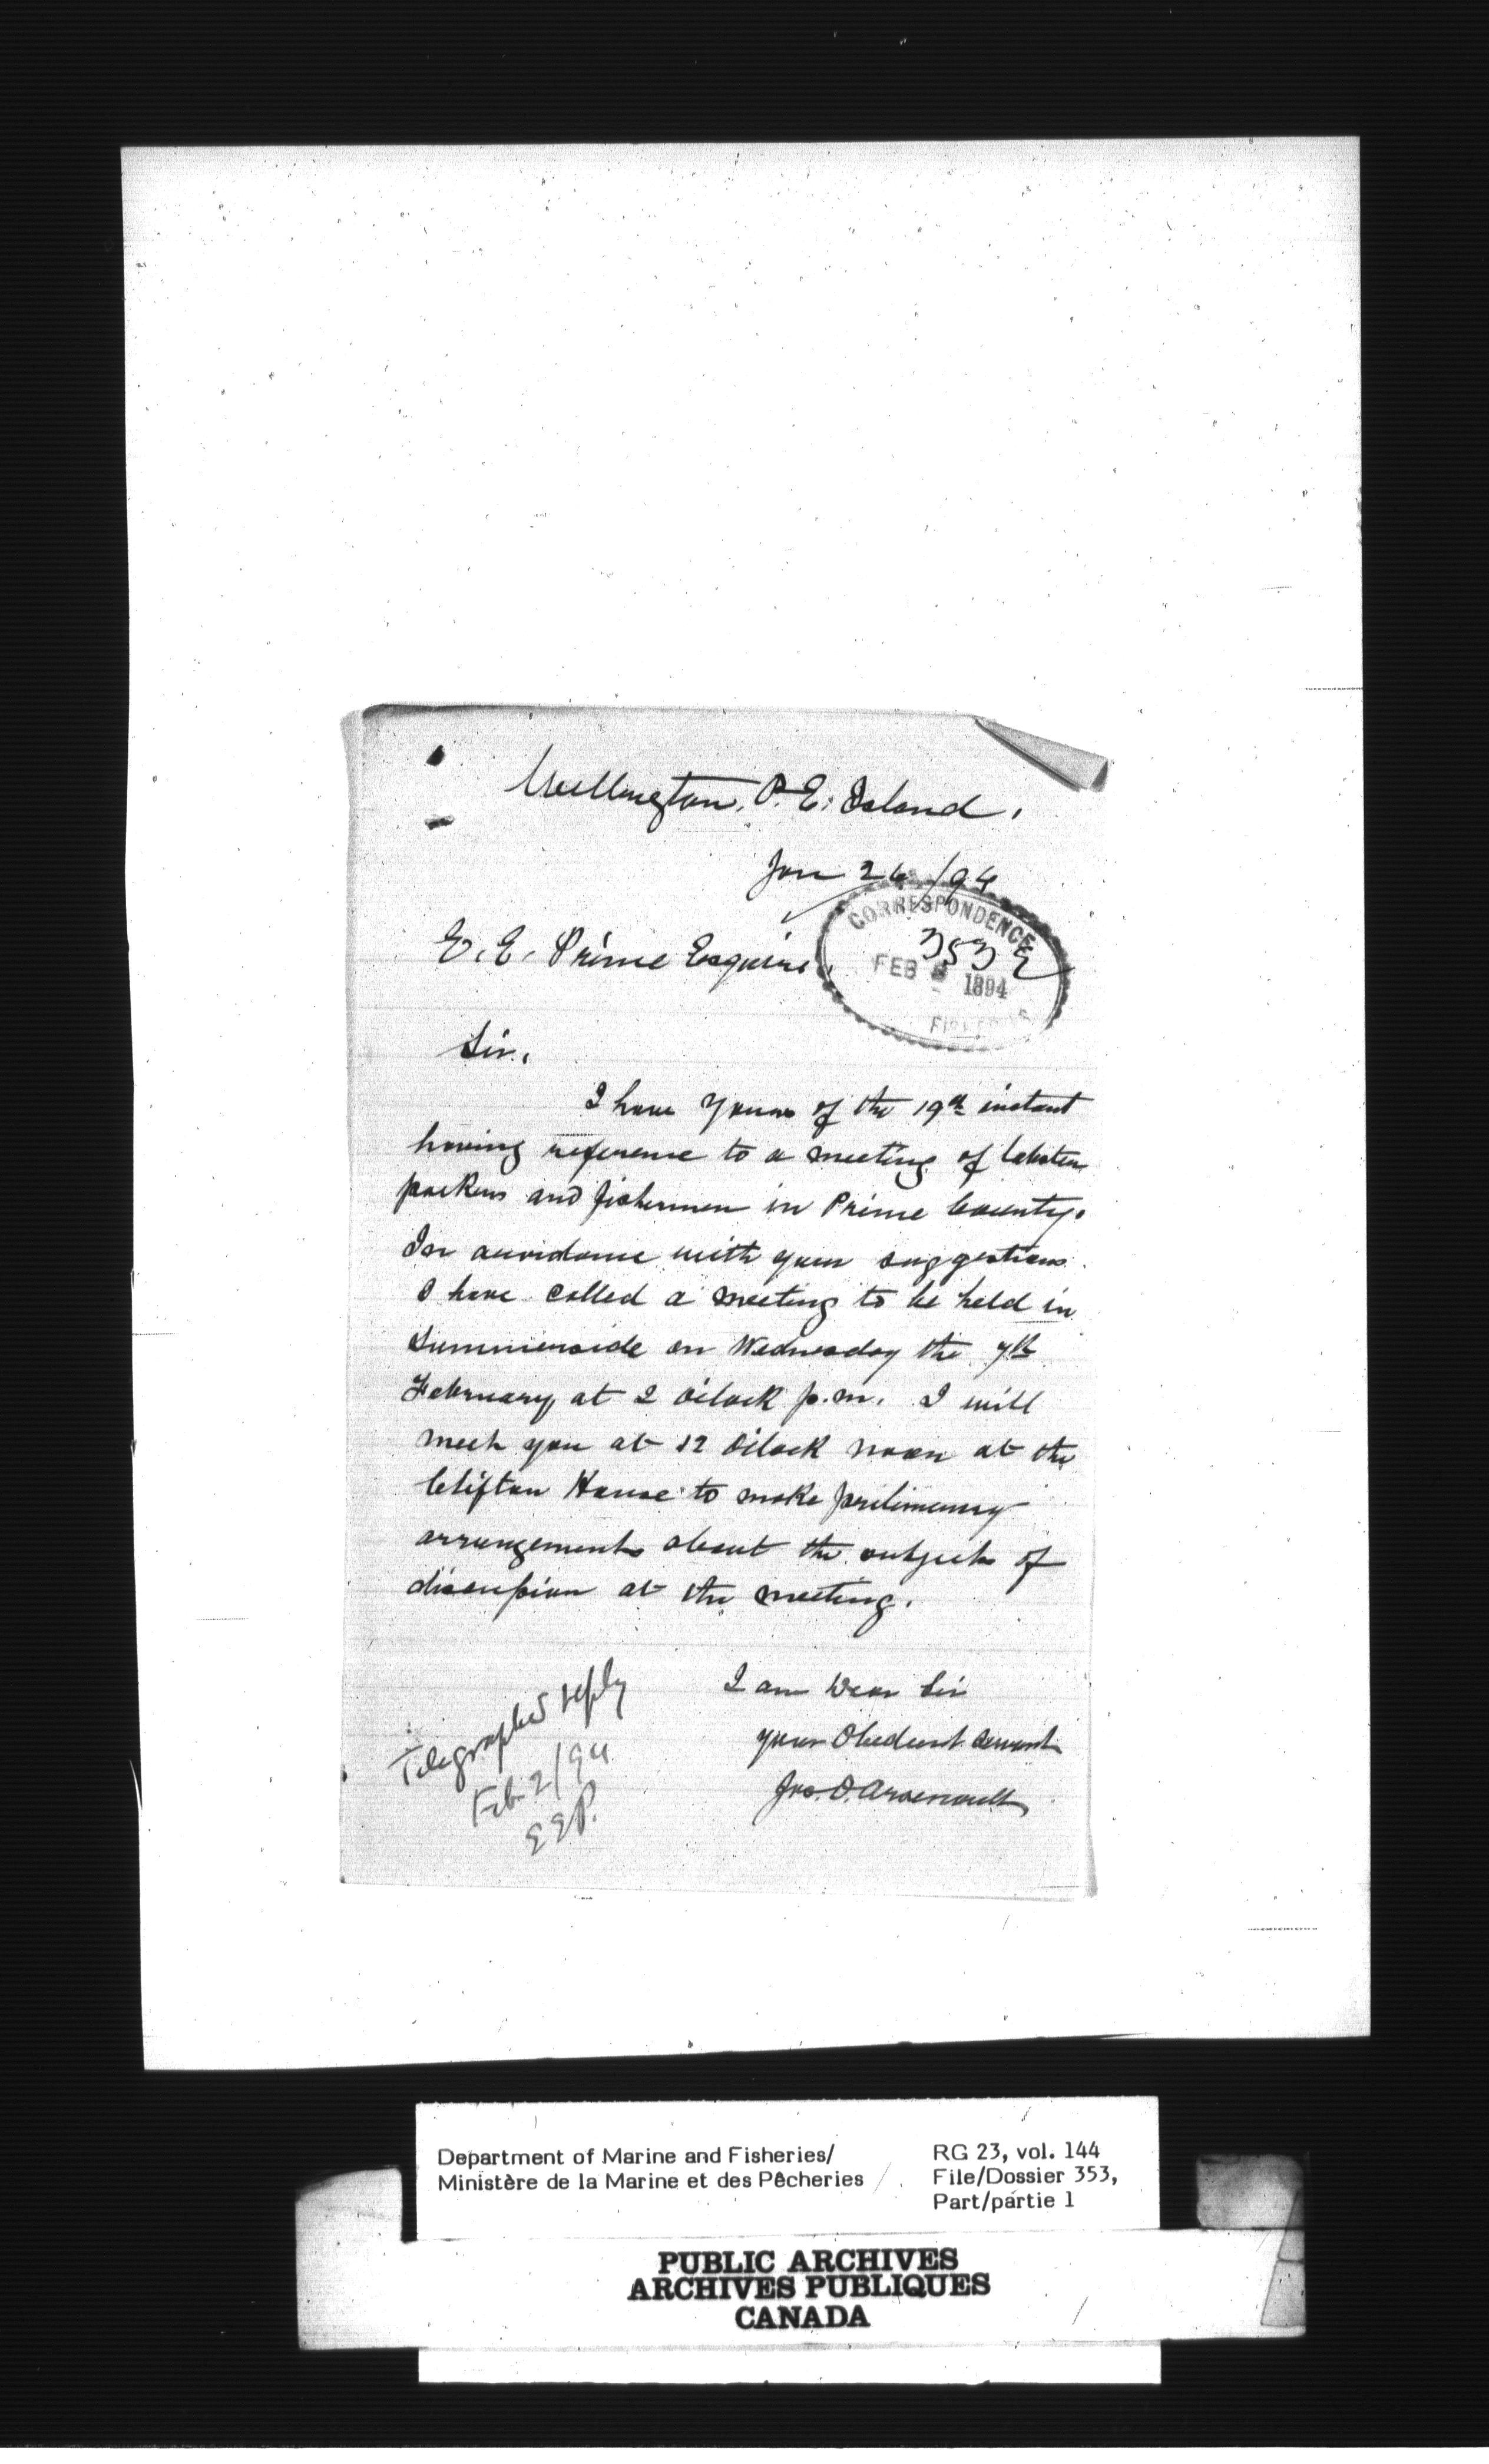 Wellington, P. E. Island,
Jan 26/94
CORRESPONDENCE
353
FEB 1894
FISHERIES
E. E. Prince Esquire,
Sir,
I have yours of the 19th instant
having reference to a meeting of lobster
packers and fishermen in Prince County.
In accordance with your suggestions
I have called a meeting to be held in
Summerside on Wednesday the 7th
February, at 2 o'clock p.m. I will
meet you at 12 o'clock noon at the
Clifton House to make preliminary
arrangements about the subjects of
discussion at the meeting.
I am Dear Sir
your Obedient Servant
Jos. O. Arsenault
Telegraphed reply
Feb 2/94
E E P.
Department of Marine and Fisheries/
Ministère de la Marine et des Pêcheries
RG 23, vol. 144
File/Dossier 353,
Part/partie 1
PUBLIC ARCHIVES
ARCHIVES PUBLIQUES
CANADA